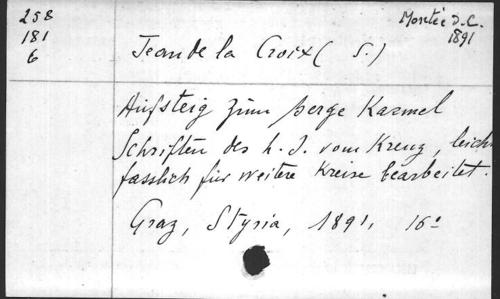 258
181
6
Montée d. C.
1891
Jean de la Croix ( S. )
Aufsteig zum Berge Karmel
Schriften des h. J. vom Kreuz, leicht
fasslich für weitere Kreise bearbeitet.
Graz, Styria, 1891, 16°